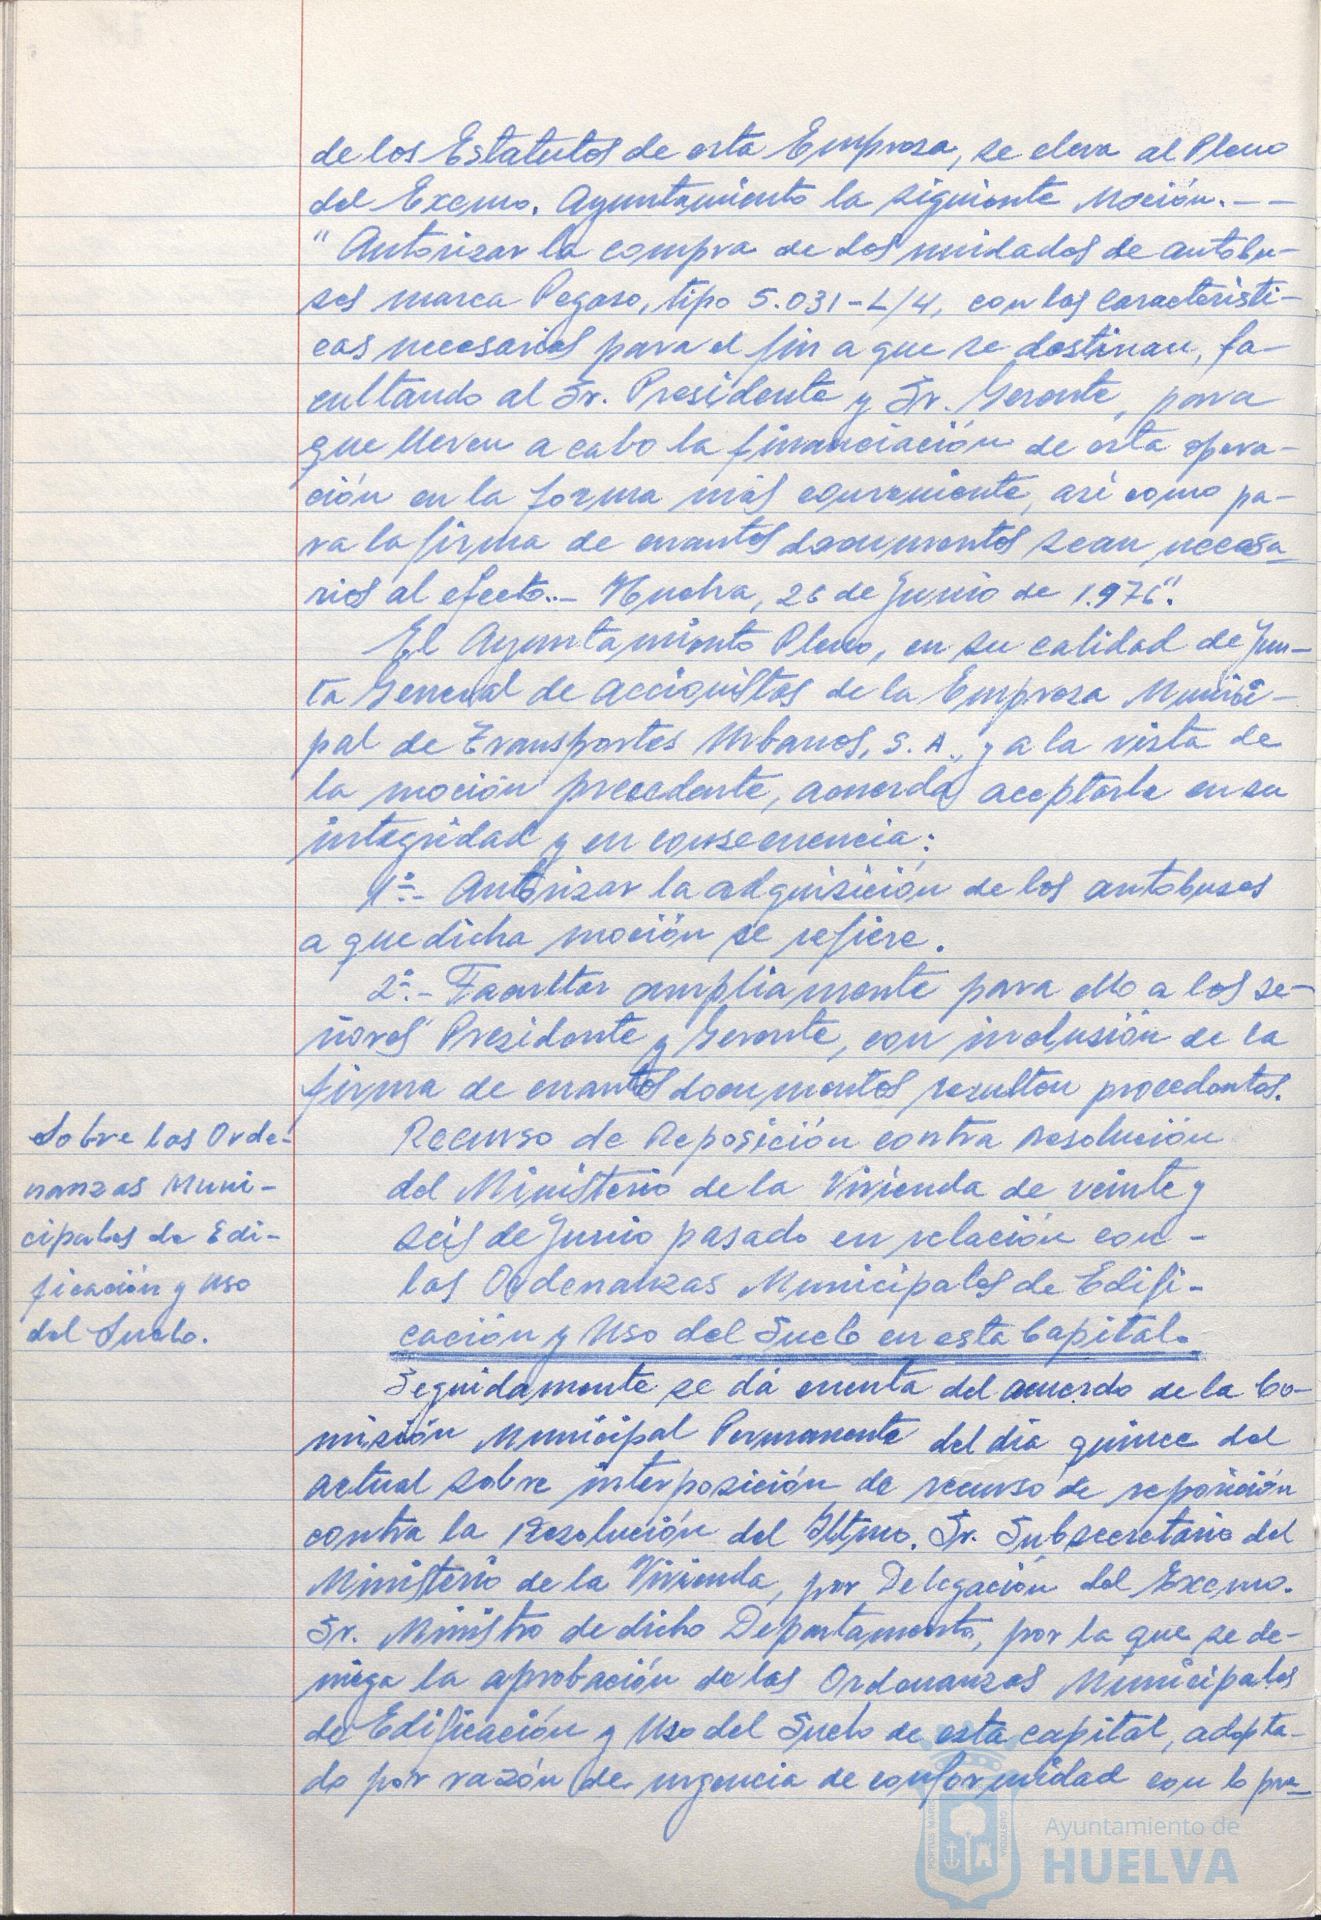 de los Estatutos de esta Empresa, se eleva al Pleno
del Excmo. Ayuntamiento la siguiente Moción.- -
"Autorizar la compra de dos unidades de autobu-
ses marca Pegaso, tipo 5.031-L/4, con las característi-
cas necesarias para el fin a que se destinan, fa-
cultando al Sr. Presidente y Sr. Gerente, para
que lleven a cabo la financiación de esta opera-
ción en la forma más conveniente, así como pa-
ra la firma de cuantos documentos sean necesa-
rios al efecto..- Huelva, 26 de Junio de 1.976".
El Ayuntamiento Pleno, en su calidad de Jun-
ta General de Accionistas de la Empresa Munici-
pal de Transportes Urbanos, S. A., y a la vista de
la moción precedente, acuerda aceptarla en su
integridad y en consecuencia:
1º.- Autorizar la adquisición de los autobuses
a que dicha moción se refiere.
2º.- Facultar ampliamente para ello a los se-
ñores Presidente y Gerente, con inclusión de la
firma de cuantos documentos resulten procedentes.
Sobre las Orde-
nanzas Muni-
cipales de Edi-
ficación y Uso
del Suelo.
Recurso de Reposición contra Resolución
del Ministerio de la Vivienda de veinte y
seis de Junio pasado en relación con -
las Ordenanzas Municipales de Edifi-
cación y Uso del Suelo en esta Capital.
Seguidamente se dá cuenta del acuerdo de la Co-
misión Municipal Permanente del día quince del
actual sobre interposición de recurso de reposición
contra la Resolución del Iltmo. Sr. Subsecretario del
Ministerio de la Vivienda, por Delegación del Excmo.
Sr. Ministro de dicho Departamento, por la que se de-
niega la aprobación de las Ordenanzas Municipales
de Edificación y Uso del Suelo de esta capital, adopta-
do por razón de urgencia de conformidad con lo pre-
PORTUS MARIS
CUSTODIA
Ayuntamiento de
HUELVA